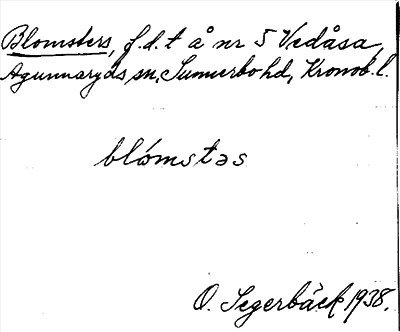 Blomsters, f.d. t å nr 5 Vedåsa,
Agunnaryds sn, Sunnerbo hd, Kronob. l.
blómstəs
O. Segerbäck 1938.